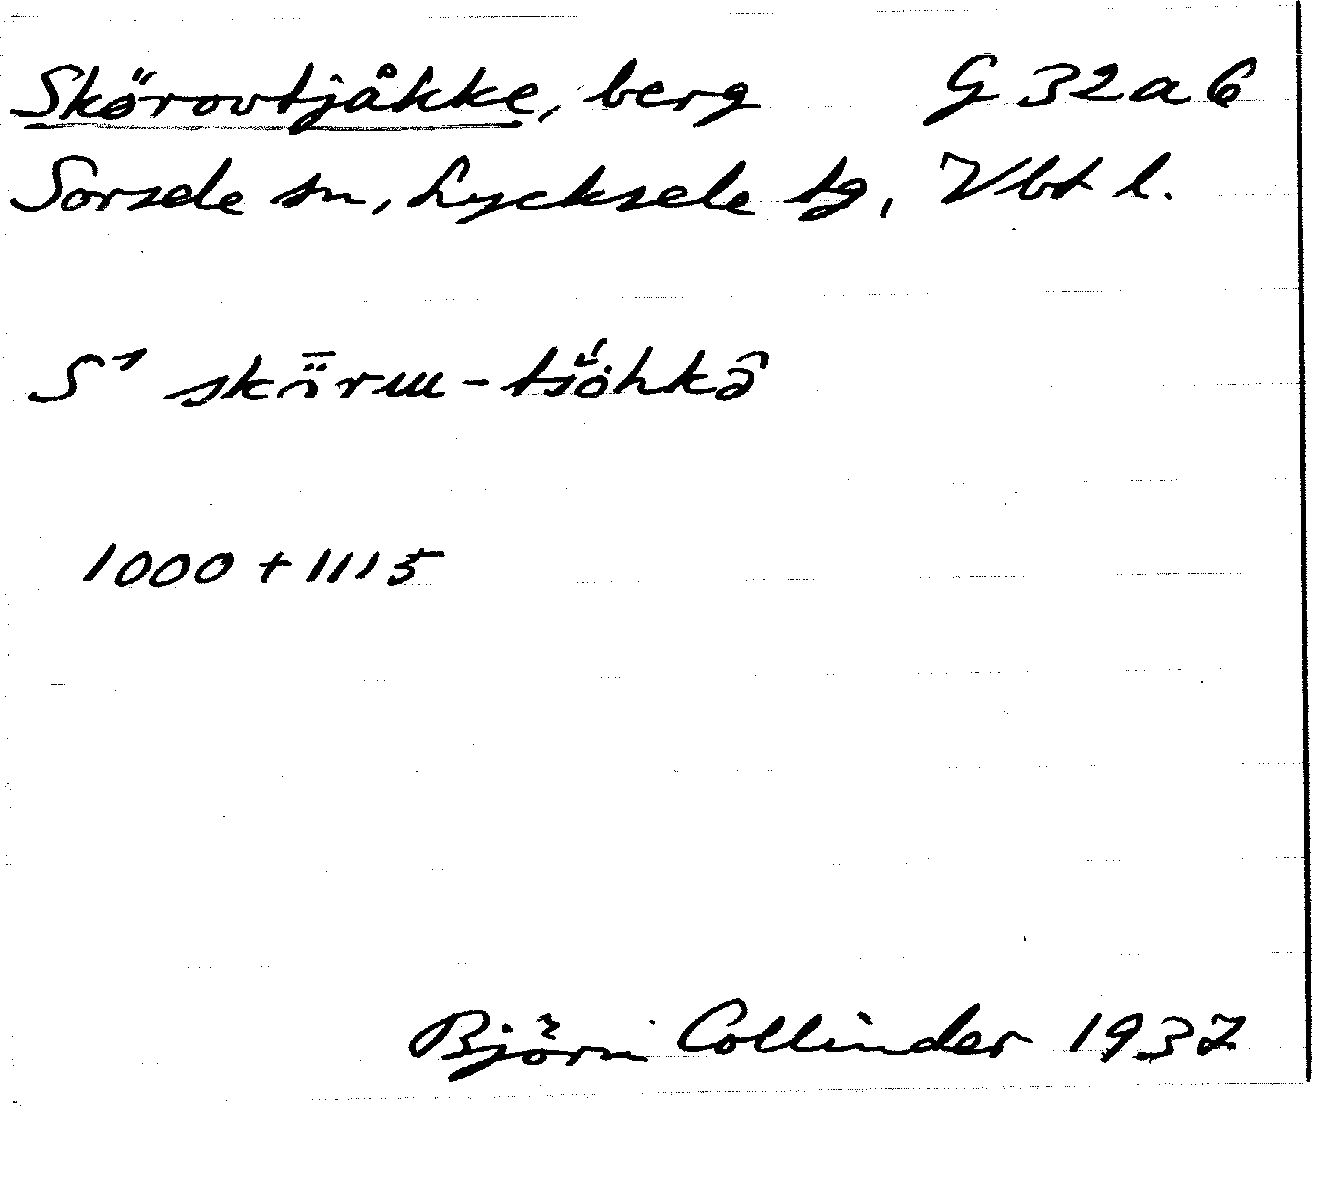 Skörovtjåkke, berg G 32 a 6
Sorsele sn, Lycksele tg, Vbt l.
1000 + 1115
Björn Collinder 1937